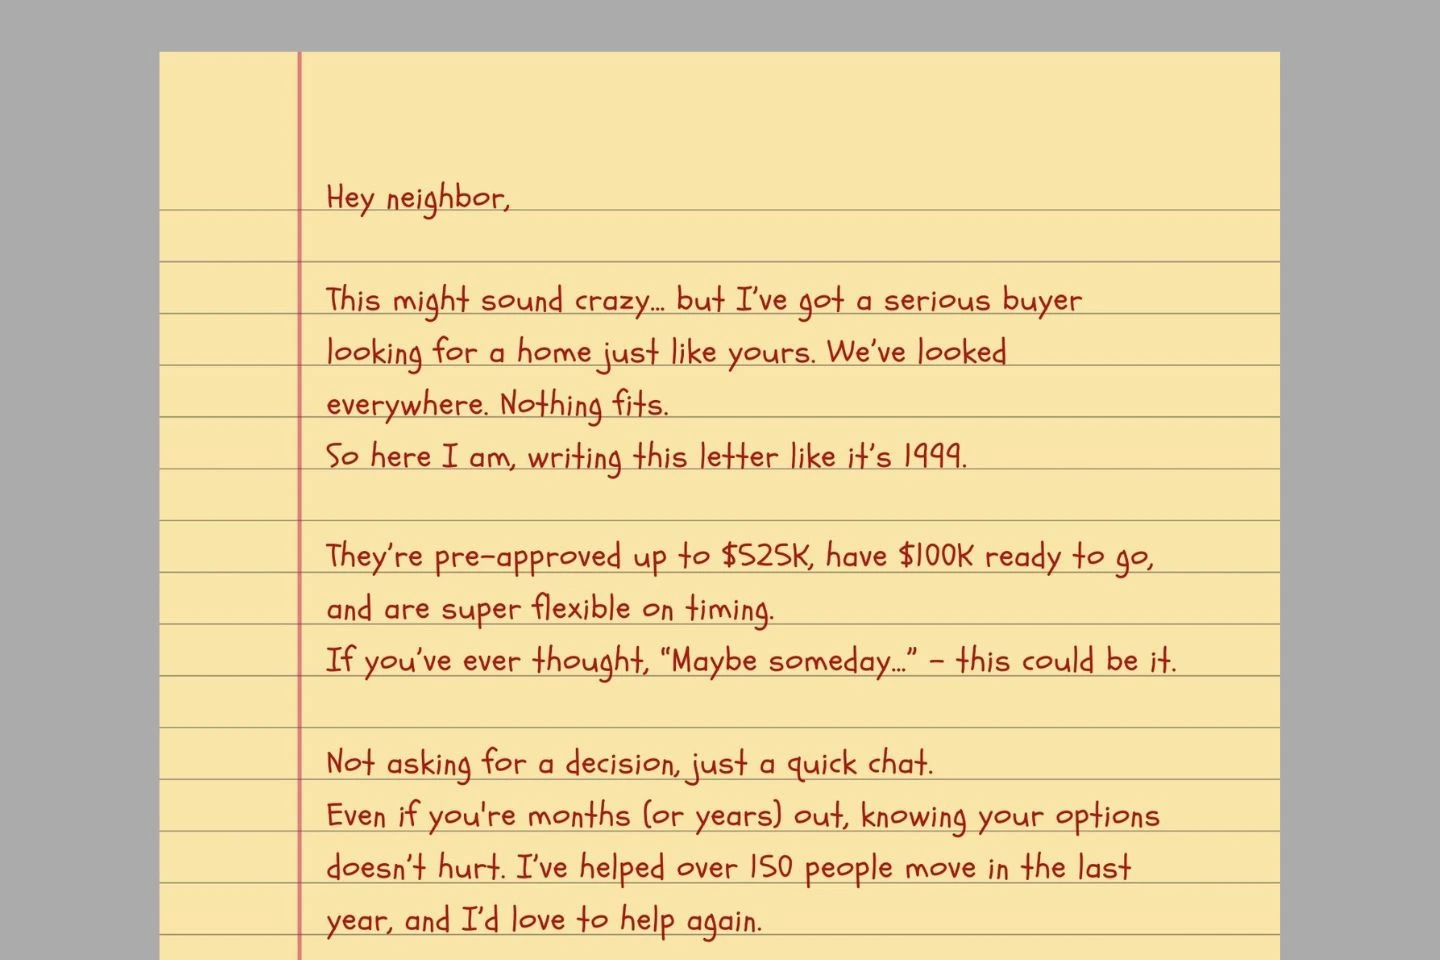 Hey neighbor,
This might sound crazy... but I've got a serious buyer
looking for a home just like yours. We've looked
everywhere. Nothing fits.
So here I am, writing this letter like it's 1999.
They're pre-approved up to $525K, have $100K ready to go,
and are super flexible on timing.
If you've ever thought, “Maybe someday...” – this could be it.
Not asking for a decision, just a quick chat.
Even if you're months (or years) out, knowing your options
doesn't hurt. I've helped over 150 people move in the last
year, and I'd love to help again.